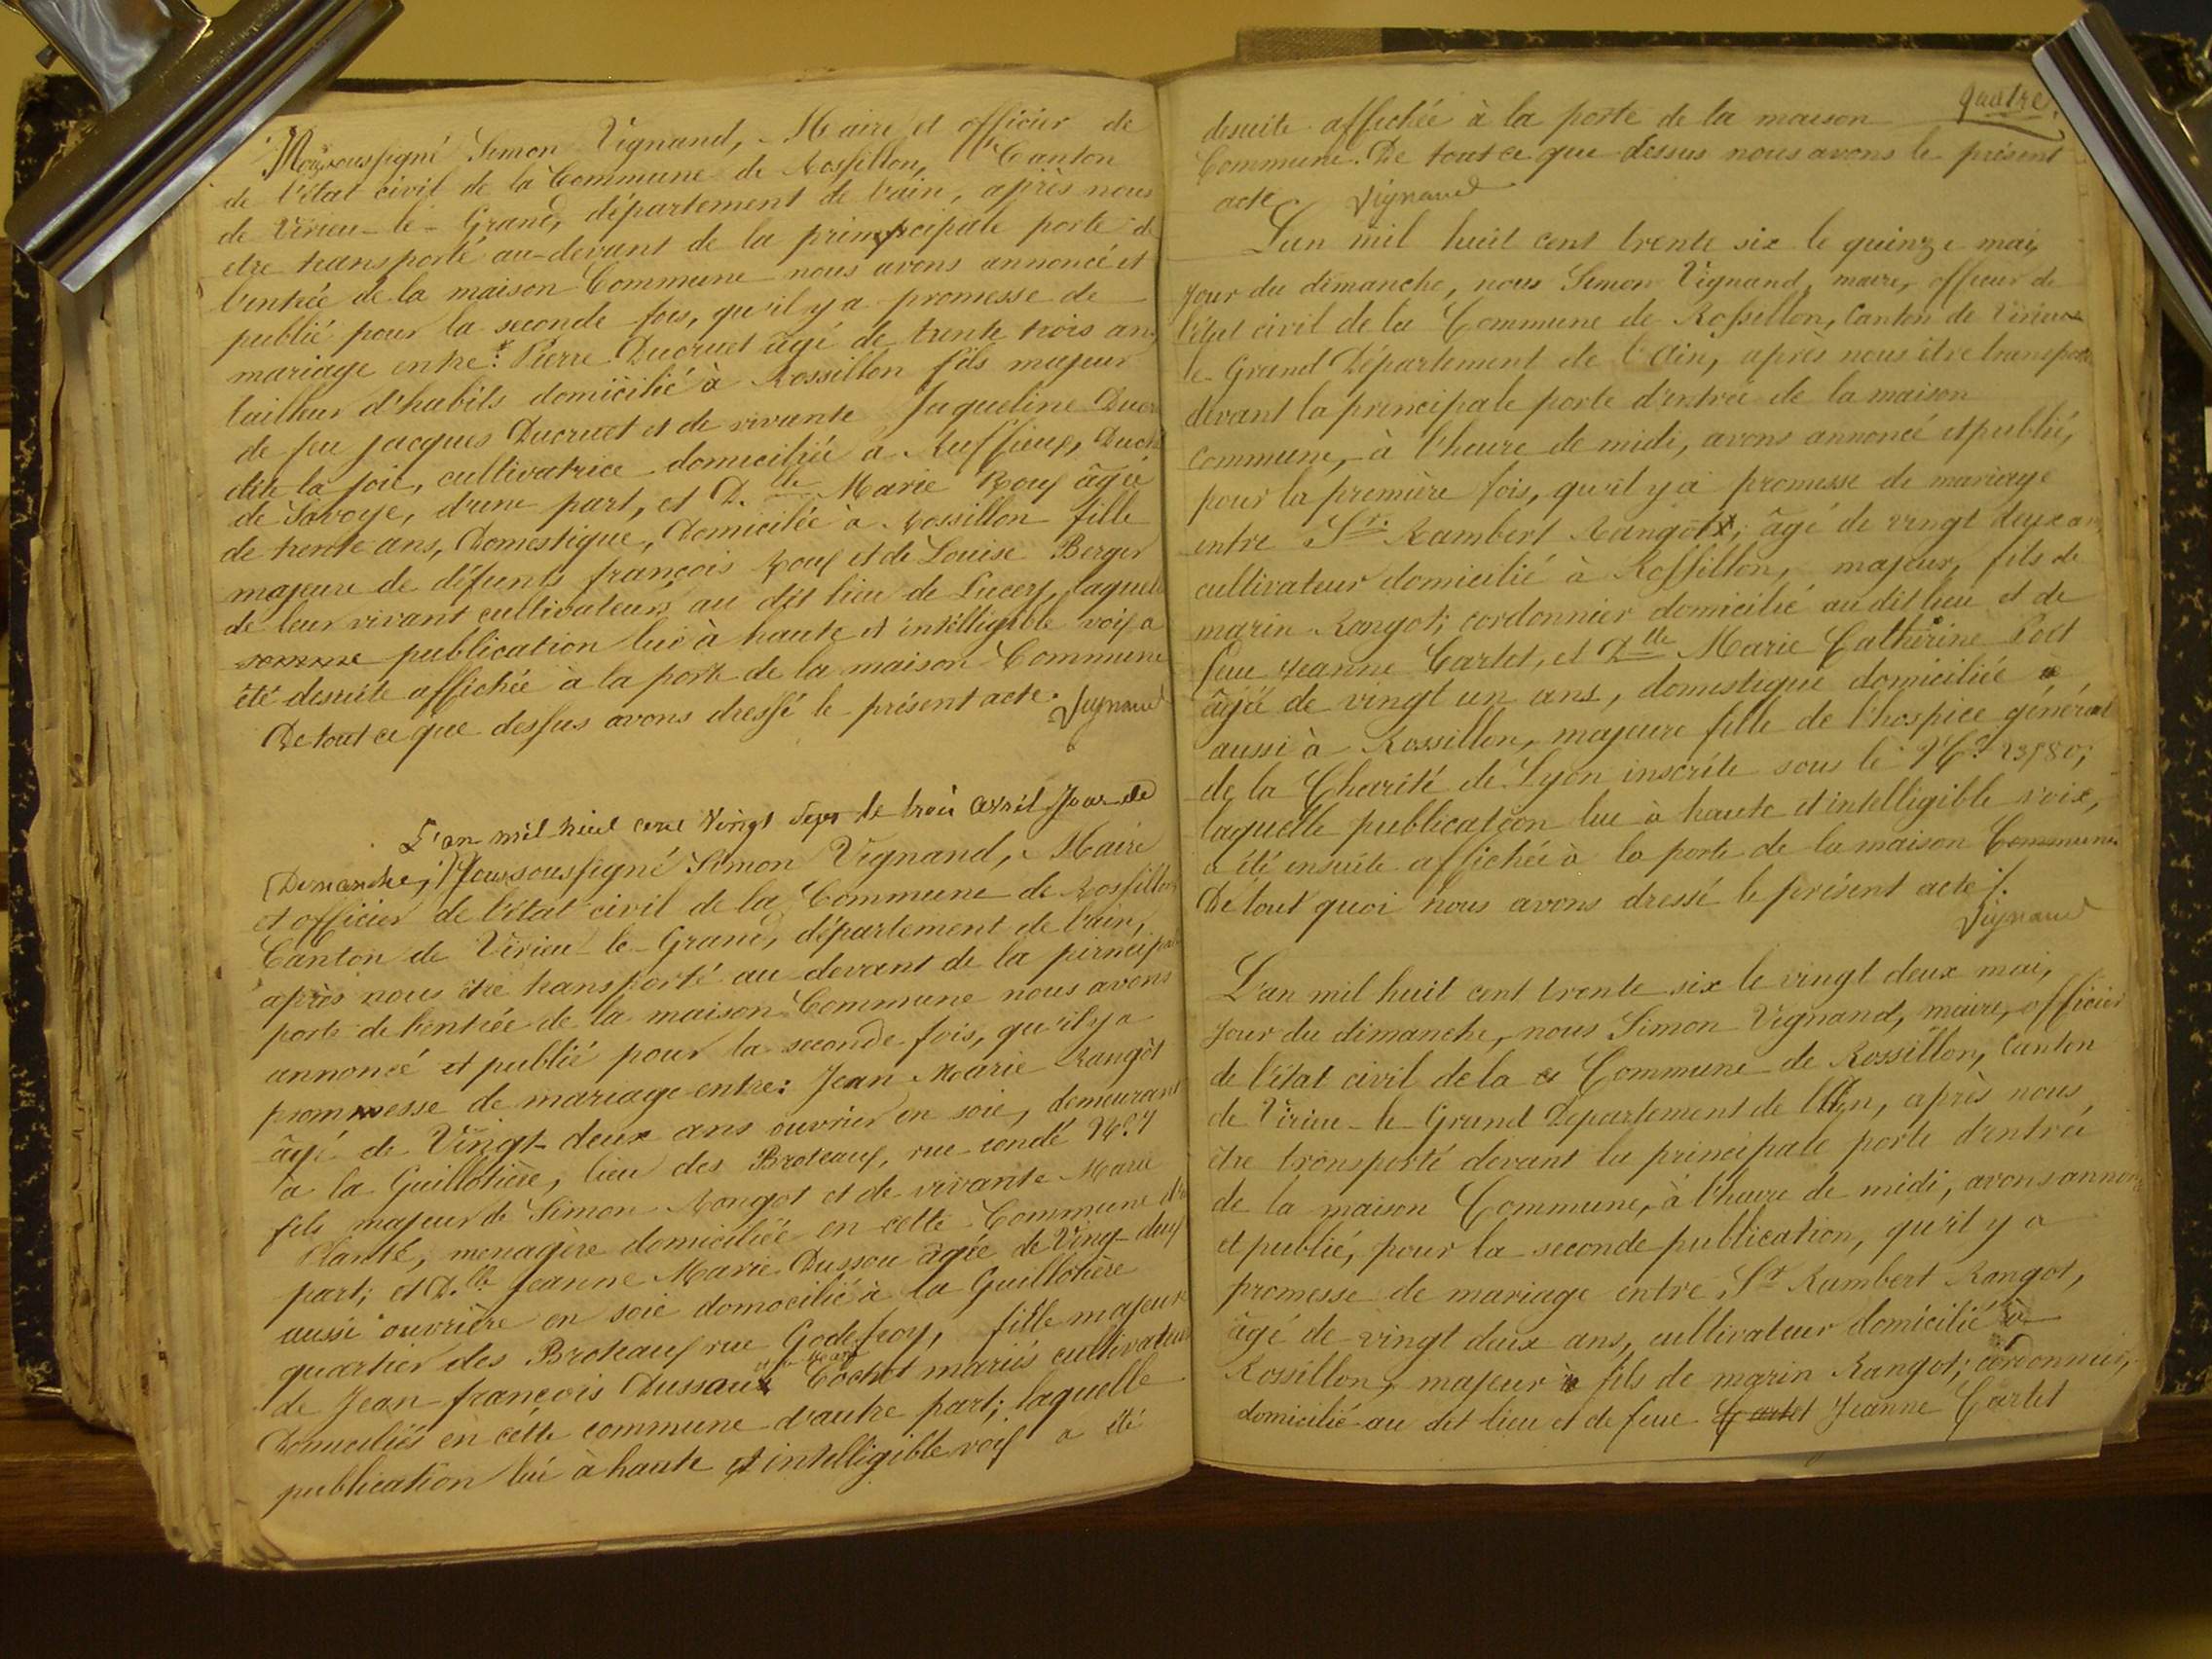 Nous soussigné Simon Vignand, Maire et officier de
de l'état civil de la Commune de Rossillon, Canton
de Virieu-le-Grand, département de l'ain, après nous
etre transporté au-devant de la principale porte d
l'entrée de la maison Commune nous avons annoncé et
publié pour la seconde fois, qu'il y a promesse de
mariage entre: Pierre Ducruet âgé de trente trois ans
tailleur d'habits domicilié à Rossillon fils majeur
de feu Jacques Ducruet et de vivante Jaqueline
dite la joie, cultivatrice domiciliée à Ruffieux, Duché
de Savoye, d'une part, et D.lle Marie Roux âgée
de trente ans, Domestique, Domicilée à Rossillon fille
majeure de défunts françois Roux et de Louise Berger
de leur vivant cultivateurs au dit lieu de Lucey, laquelle
publication lue à haute et intelligible voix a
été desuite affichée à la porte de la maison Commune
De tout ce que dessus avons dressé le présent acte. Vignand
L'an mil huit cent vingt sept le trois avril Jour de
Demanche, Nous soussigné Simon Vignand, Maire
et officier de l'état civil de la Commune de Rossillon
Canton de Virieu le-Grand, département de l'ain,
après nous être transporté au devant de la pirncipale
porte de l'entrée de la maison Commune nous avons
annoncé et publié pour la seconde fois, qu'il y a
prommesse de mariage entre: Jean Marie Rangot
âgé de Vingt-deux ans ouvrier en soie, demeurant
à la Guillotière, lieu des Broteaux, rue condé N.º 7
fils majeur de Simon Rangot et de vivante Marie
Plante, menagère domiciliée en cette Commune d'u
part; et D.lle Jeanne Marie Dussou âgée de Ving-deux
aussi ouvrière en soie domocilié à la Guillotière
quartier des Broteaux rue Godefroy, fille majeure
de Jean-françois Dussaux Cochet mariés cultivateurs
Domiciliés en cette commune d'autre part; laquelle
publication lue à haute et intelligible voix a été
quatre
desuite affichée à la porte de la maison
Commune. De tout ce que dessus nous avons le présent
acte Vignand
L'an mil huit cent trente six le quinze mai,
jour du dimanche, nous Simon Vignand, maire, officier de
l'état civil de la Commune de Rossillon, Canton de Virieu
le Grand Département de l'Ain, après nous être transporté
devant la principale porte d'entrée de la maison
commune, à l'heure de midi, avons annoncé et publié,
pour la première fois, qu'il y a promesse de mariage
entre St. Rambert Rangot, âgé de vingt deux ans
cultivateur domicilié à Rossillon, majeur, fils de
marin Rangot; cordonnier domicilié au dit lieu et de
feue Jeanne Cartet, et Dlle Marie Catherine
âgée de vingt un ans, domestique domiciliée
aussi à Rossillon, majeure fille de l'hospice général
de la Charité de Lyon inscrite sous le Nº 23580;
laquelle publication lue à haute et intelligible voix,
a été ensuite affichée à la porte de la maison Commune
De tout quoi nous avons dressé le présent acte /.
Vignand
L'an mil huit cent trente six le vingt deux mai,
jour du dimanche, nous Simon Vignand, maire, officier
de l'état civil de la Commune de Rossillon, Canton
de Virieu-le-Grand Département de l'Ain, après nous
être transporté devant la principale porte d'entrée
de la maison Commune, à l'heure de midi, avons annoncé
et publié, pour la seconde publication, qu'il y a
promesse de mariage entre St Rambert Rangot,
âgé de vingt deux ans, cultivateur domicilié à
Rossillon, majeur fils de marin Rangot; cordonnier,
domicilié au dit lieu et de feue Cartet Jeanne Cartet